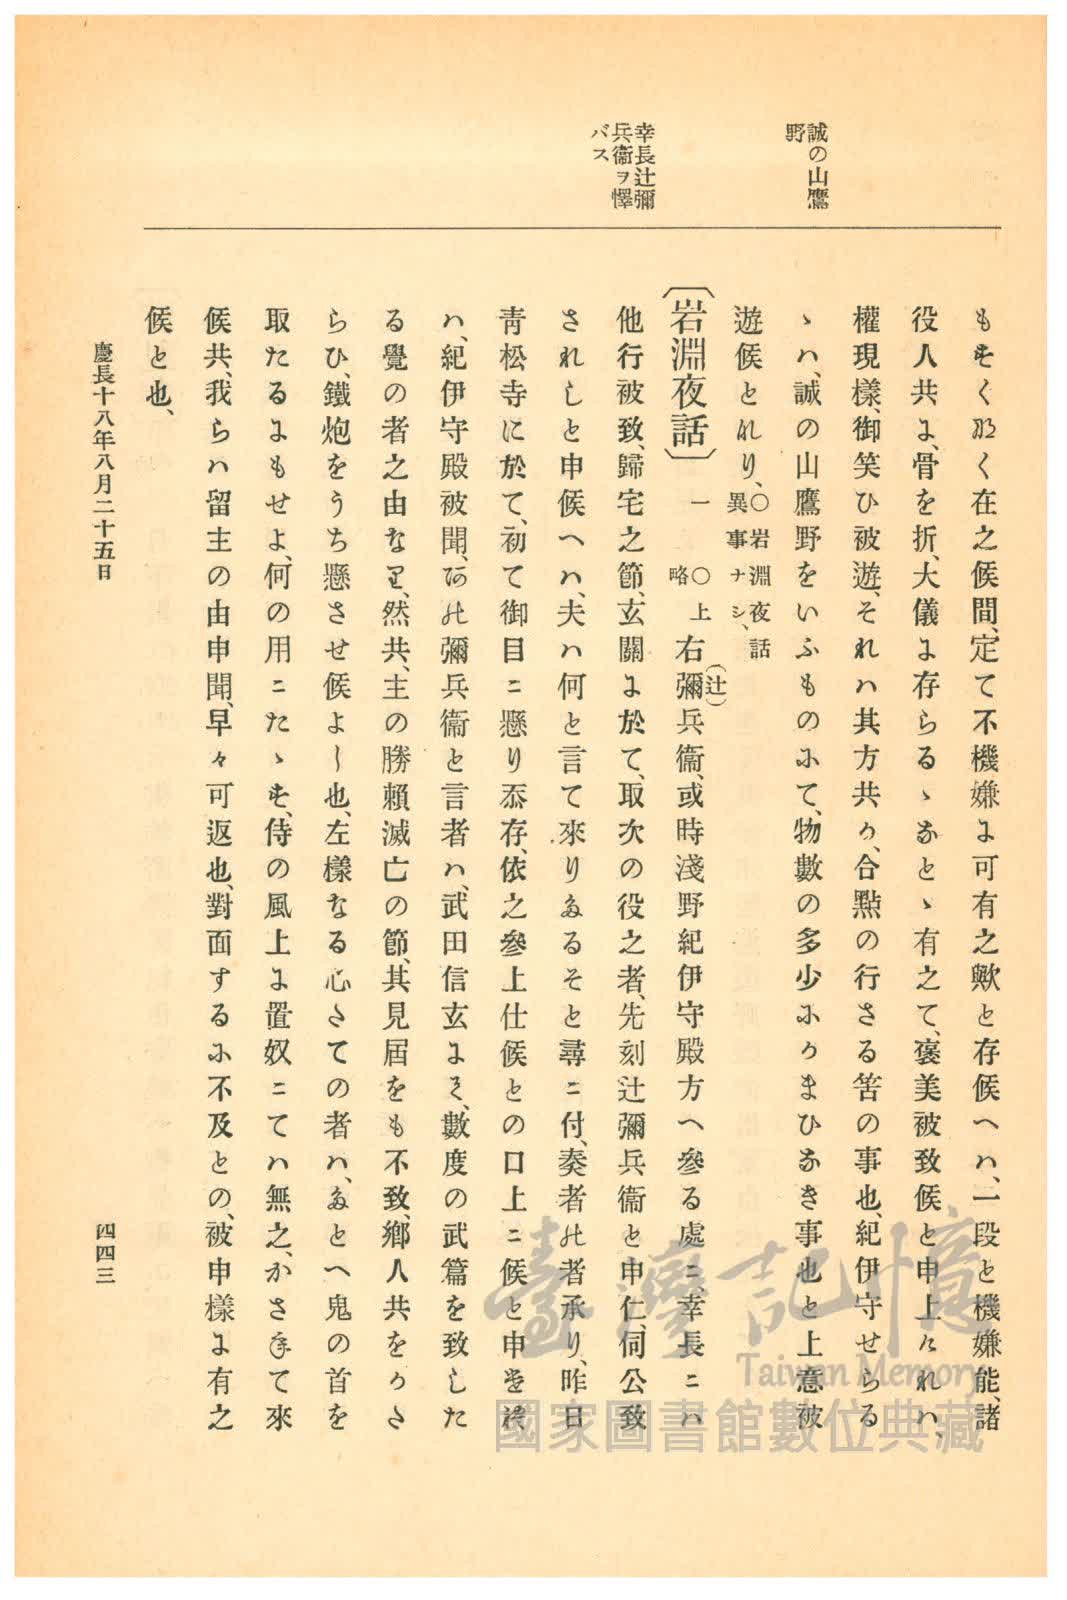 誠の山鷹
野
幸長辻彌
兵衞ヲ懌
バス
もすくなく在之候間、定て不機嫌に可有之歟と存候へハ、一段と機嫌能、諸
役人共に、骨を折、大儀に存らるゝなとゝ有之て、褒美被致候と申上けれハ、
權現樣、御笑ひ被遊、それハ其方共か、合點の行さる筈の事也、紀伊守せらる
ゝハ、誠の山鷹野をいふものにて、物數の多少にかまひなき事也と上意被
遊候となり、○岩淵夜話
異事ナシ、
〔岩淵夜話〕 一 ○上
略 右彌(辻)兵衞、或時淺野紀伊守殿方へ參る處ニ、幸長ニハ
他行被致、歸宅之節、玄關に於て、取次の役之者、先刻辻彌兵衞と申仁、伺公致
されしと申候へハ、夫ハ何と言て來りたるそと尋ニ付、奏者此者承り、昨日
靑松寺に於て、初て御目ニ懸り忝存、依之參上仕候との口上ニ候と申せハ、
ハ、紀伊守殿被聞、あの彌兵衞と言者ハ、武田信玄にて、數度の武篇を致した
る覺の者之由なり、然共、主の勝賴滅亡の節、其見屆をも不致、鄕人共をかた
らひ、鐵炮をうち懸させ候よし也、左樣なる心たての者ハ、たとへ鬼の首を
取たるにもせよ、何の用ニたゝす、侍の風上に置奴ニてハ無之、かさねて來
候共、我らハ留主の由申聞、早々可返也、對面するに不及との、被申樣に有之
候と也、
慶長十八年八月二十五日
四四三
臺灣記憶
Taiwan Memory
國家圖書館數位典藏